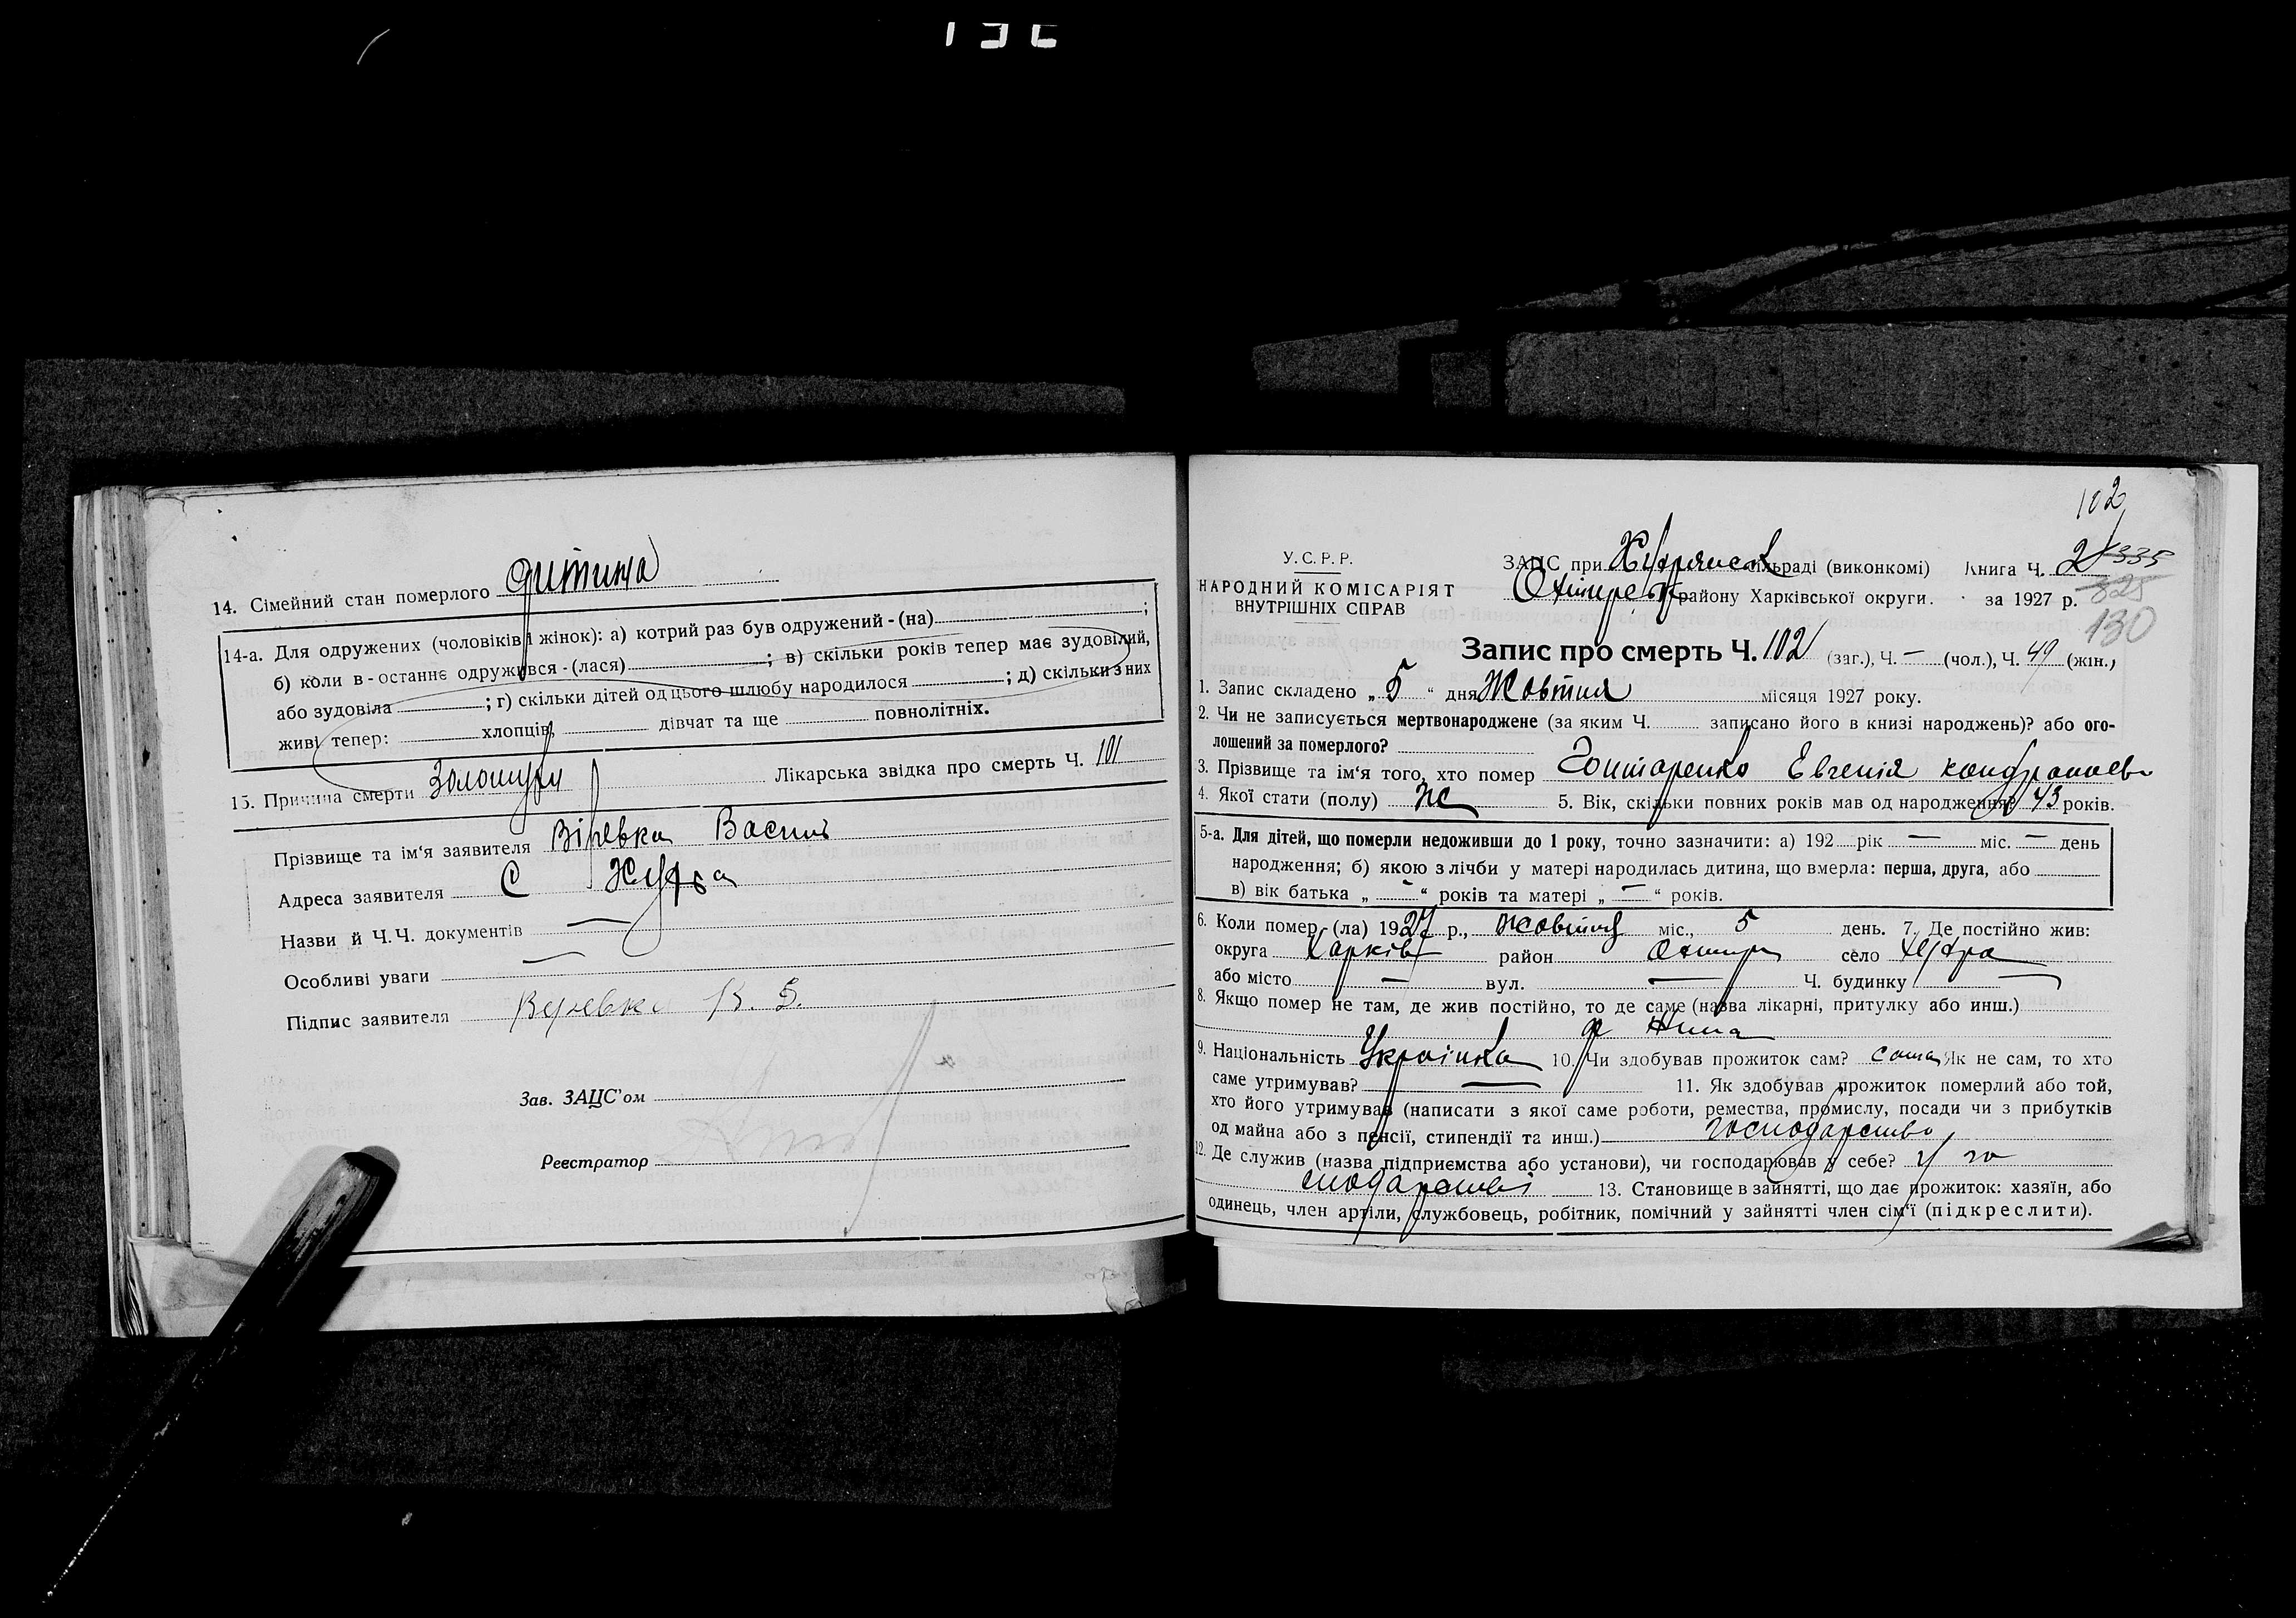 14. Сімейний стан померлого дитина
14-а. Для одружених (чоловіків і жінок): а) котрий раз був одружений - (на) ;
б) коли в - останнє одружився - (лася) ; в) скільки років тепер має зудовілий,
або зудовіла ; г) скільки дітей од цього шлюбу народилося ; д) скільки з них
живі тепер: хлопців, дівчат та ще повнолітніх.
15. Причина смерти Золотухи Лікарська звідка про смерть Ч. 101
Прізвище та ім'я заявителя Вірьвка Василь
Адреса заявителя С Хухра
Назви й Ч.Ч. документів —
Особливі уваги —
Підпис заявителя Веревка В. З.
Зав. ЗАЦС'ом
Реєстратор
102
У.С.Р.Р.
НАРОДНИЙ КОМІСАРІЯТ
ВНУТРІШНІХ СПРАВ
ЗАЦС при сільраді (виконкомі) Книга Ч. 2 335
Охтирськ району Харківської округи. за 1927 р. 325
130
Запис про смерть Ч. 102 (заг.), Ч. — (чол.), Ч. 49 (жін.,
1. Запис складено „ 5 “ дня Жовтня місяця 1927 року.
2. Чи не записується мертвонароджене (за яким Ч. записано його в книзі народжень)? або ого-
лошений за померлого?
3. Прізвище та ім'я того, хто помер Гонтаренко Евгенія кондратьев
4. Якої стати (полу) Ж 5. Вік, скільки повних років мав од народження? 43 років.
5-а. Для дітей, що померли недоживши до 1 року, точно зазначити: а) 192 рік — міс. — день
народження; б) якою з лічби у матері народилась дитина, що вмерла: перша, друга, або
в) вік батька „ — “ років та матері „ — “ років.
6. Коли помер (ла) 1927 р., жовтня міс., 5 день. 7. Де постійно жив:
округа Харків район Охтир село Хухра
або місто — вул. — Ч. будинку —
8. Якщо помер не там, де жив постійно, то де саме (назва лікарні, притулку або инш.)
9. Національність Українка 10. Чи здобував прожиток сам? сама Як не сам, то хто
саме утримував? — 11. Як здобував прожиток померлий або той,
хто його утримував (написати з якої саме роботи, ремества, промислу, посади чи з прибутків
од майна або з пенсії, стипендії та инш.) господарство
12. Де служив (назва підприємства або установи), чи господарював у себе? у го
сподарстві 13. Становище в зайнятті, що дає прожиток: хазяїн, або
одинець, член артіли, службовець, робітник, помічний у зайнятті член сім'ї (підкреслити).